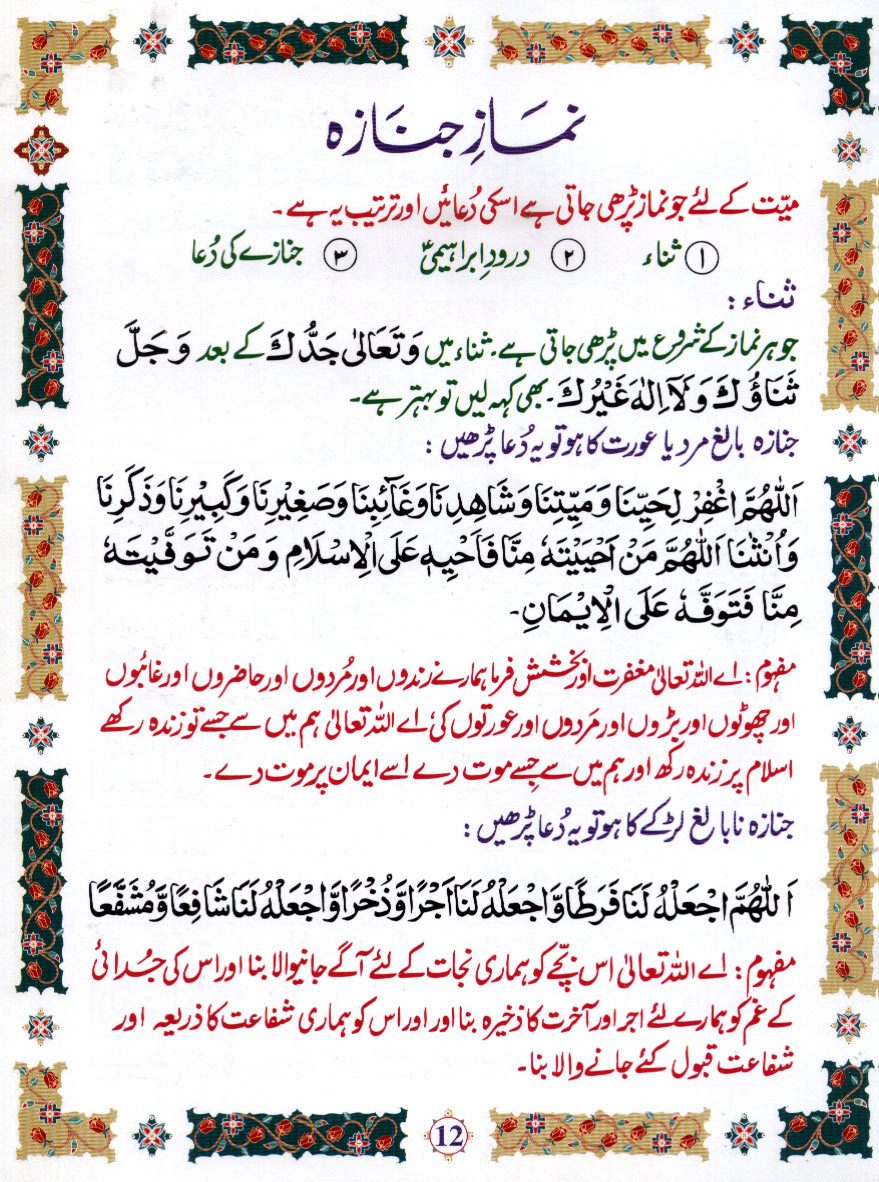 نمازِ جنازہ
میّت کے لئے جو نماز پڑھی جاتی ہے اسکی دُعائیں اور ترتیب یہ ہے ۔
۱ ثناء ۲ درودِ ابراہیمیؑ ۳ جنازے کی دُعا
ثناء :
جو ہر نماز کے شروع میں پڑھی جاتی ہے۔ ثناء میں وَتَعَالٰی جَدُّكَ کے بعد وَجَلَّ
ثَنَاؤُكَ وَلَآ اِلٰهَ غَيْرُكَ۔ بھی کہہ لیں تو بہتر ہے۔
جنازہ بالغ مرد یا عورت کا ہو تو یہ دُعا پڑھیں :
اَللّٰهُمَّ اغْفِرْ لِحَيِّنَا وَمَيِّتِنَا وَشَاهِدِنَا وَغَآئِبِنَا وَصَغِيْرِنَا وَكَبِيْرِنَا وَذَكَرِنَا
وَاُنْثٰنَا اَللّٰهُمَّ مَنْ اَحْيَيْتَهٗ مِنَّا فَاَحْيِهٖ عَلَى الْاِسْلَامِ وَمَنْ تَوَفَّيْتَهٗ
مِنَّا فَتَوَفَّهٗ عَلَى الْاِيْمَانِ۔
مفہوم : اے اللہ تعالیٰ مغفرت اور بخشش فرما ہمارے زندوں اور مُردوں اور حاضروں اور غائبوں
اور چھوٹوں اور بڑوں اور مَردوں اور عورتوں کی اے اللہ تعالیٰ ہم میں سے جسے تو زندہ رکھے
اسلام پر زندہ رکھ اور ہم میں سے جسے موت دے اسے ایمان پر موت دے۔
جنازہ نابالغ لڑکے کا ہو تو یہ دُعا پڑھیں :
اَللّٰهُمَّ اجْعَلْهُ لَنَا فَرَطًا وَّاجْعَلْهُ لَنَا اَجْرًا وَّذُخْرًا وَّاجْعَلْهُ لَنَا شَافِعًا وَّمُشَفَّعًا
مفہوم : اے اللہ تعالیٰ اس بچّے کو ہماری نجات کے لئے آگے جانیوالا بنا اور اس کی جُدائی
کے غم کو ہمارے لئے اجر اور آخرت کا ذخیرہ بنا اور اور اس کو ہماری شفاعت کا ذریعہ اور
شفاعت قبول کئے جانے والا بنا۔
12